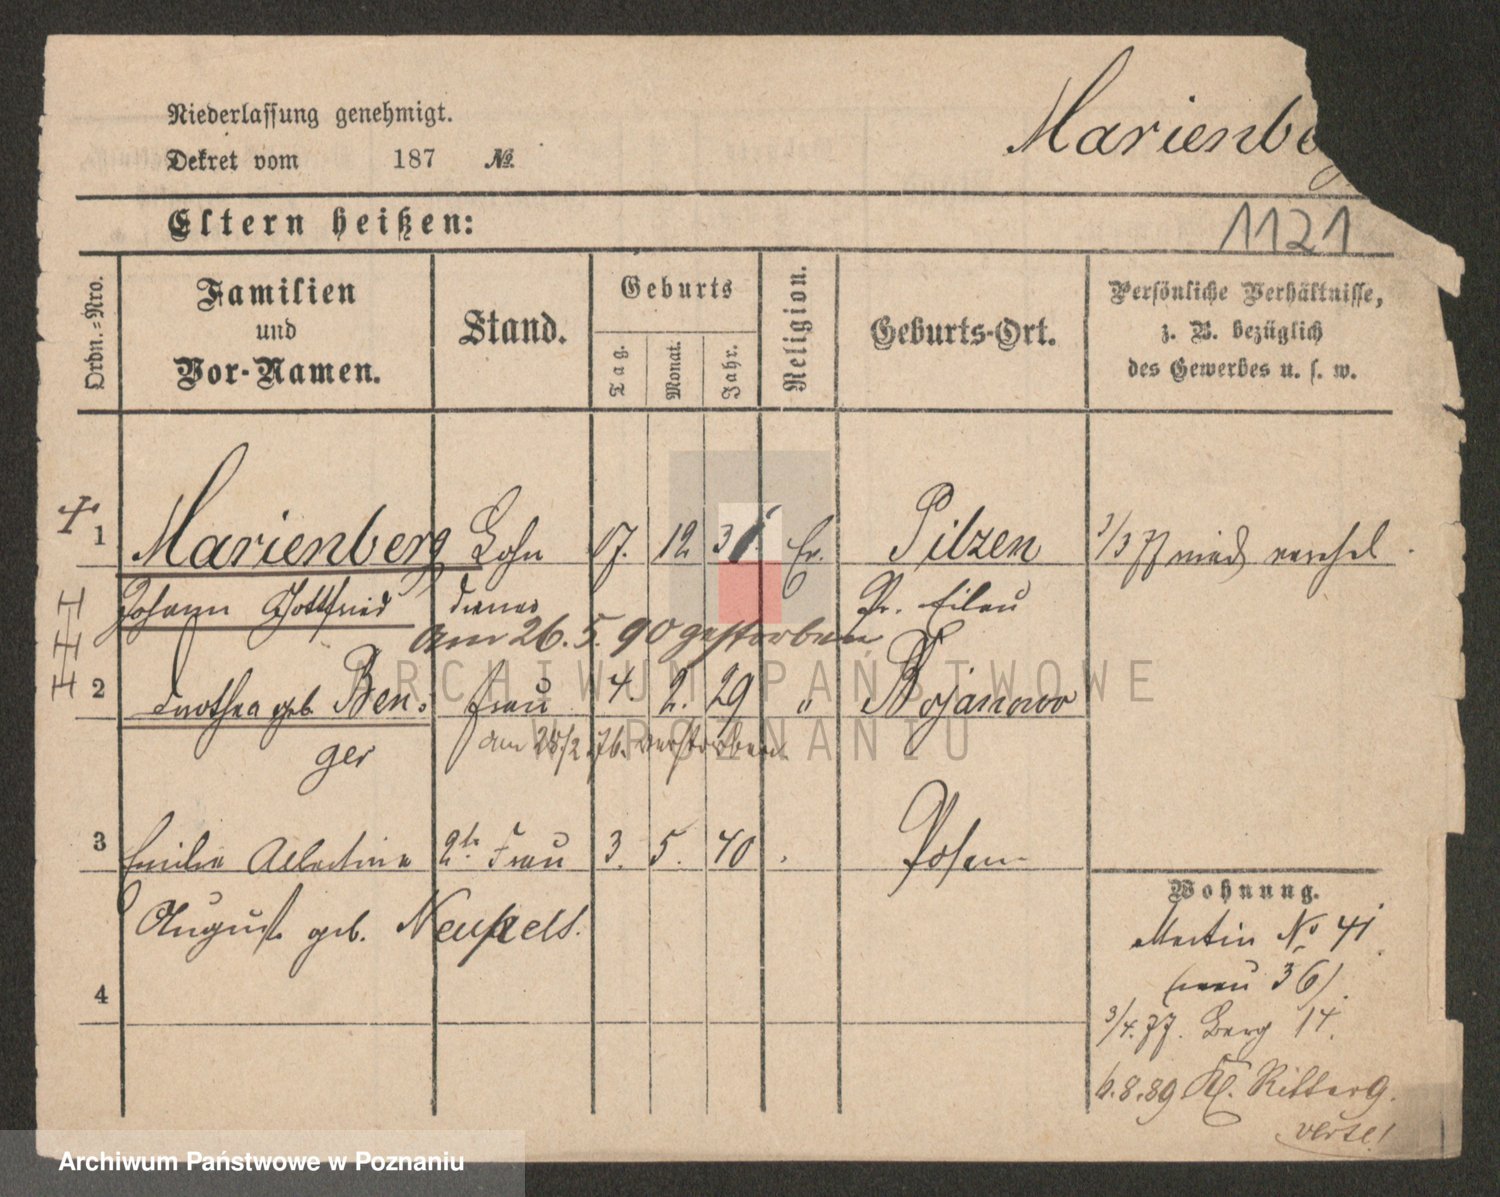 Niederlassung genehmigt.
Dekret vom 187 №
Marienbe
1121
Eltern heißen:
Ordn.-Nro.
Familien und Vor-Namen.
Stand.
Geburts
Tag. Monat. Jahr.
Religion.
Geburts-Ort.
Persönliche Verhältnisse, z. B. bezüglich des Gewerbes u. s. w.
1 Marienberg Lohn 17. 12 31. Ev. Pilzen 3/3 77 wied verehel.
Johann Gottfried diener Pr. Eilau
am 26. 5. 90 gestorben
2 Dorothea geb. Ben- Frau 4. 2. 29 " Bojanowo
ger am 28/2 76. verstorben.
3 Emilie Albertine 2te Frau 3. 5. 40 Posen
August geb.
4
Wohnung.
Martin No 41
(neu 36).
3/4. 77. Berg 14.
6.8.89 Kl. Ritterg.
verte!
ARCHIWUM PAŃSTWOWE
W POZNANIU
Archiwum Państwowe w Poznaniu